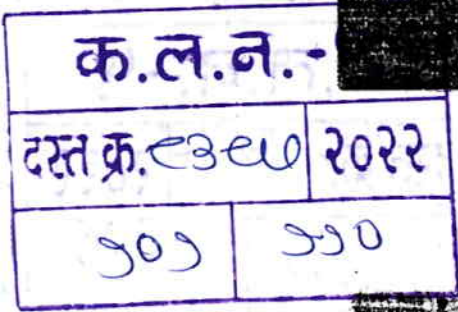 क.ल.न.-
दस्त क्र. ९३९७ २०२२
१०१ ११०